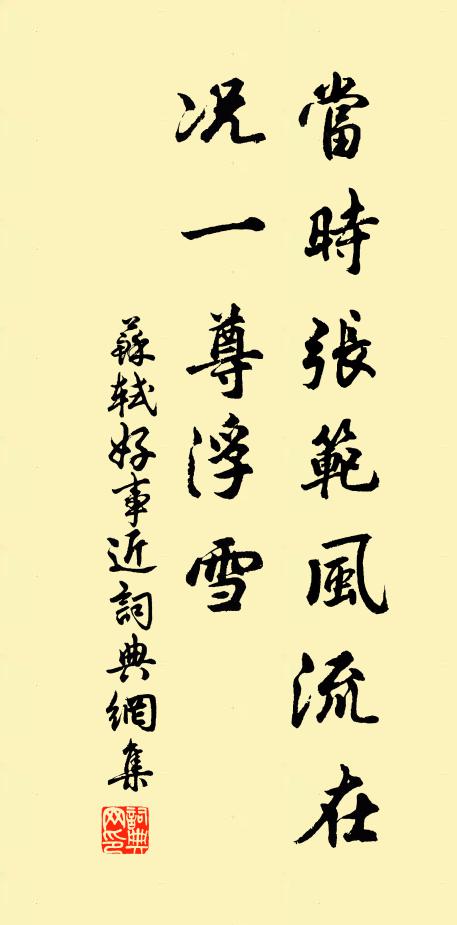 當時張範風流在
况一尊浮雪
蘇軾好事近詞典網集
詞典网印